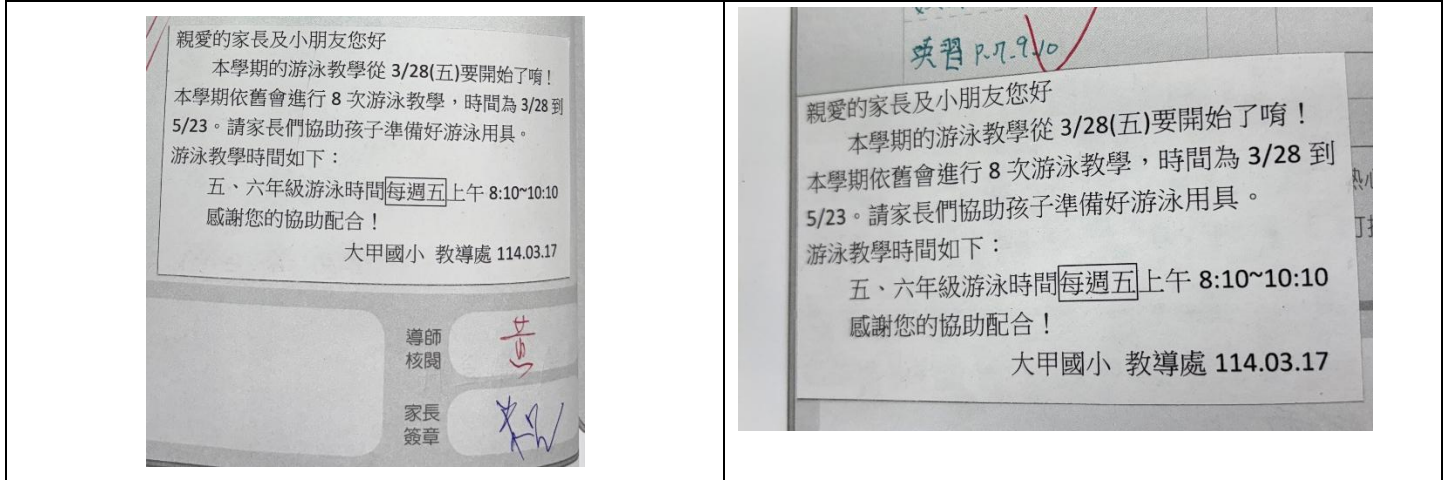 親愛的家長及小朋友您好
本學期的游泳教學從 3/28(五)要開始了唷！
本學期依舊會進行 8 次游泳教學，時間為 3/28 到
5/23。請家長們協助孩子準備好游泳用具。
游泳教學時間如下：
五、六年級游泳時間每週五上午 8:10~10:10
感謝您的協助配合！
大甲國小 教導處 114.03.17
導師
核閱
黃
家長
簽章
英習 P.7.9.10
親愛的家長及小朋友您好
本學期的游泳教學從 3/28(五)要開始了唷！
本學期依舊會進行 8 次游泳教學，時間為 3/28 到
5/23。請家長們協助孩子準備好游泳用具。
游泳教學時間如下：
五、六年級游泳時間每週五上午 8:10~10:10
感謝您的協助配合！
大甲國小 教導處 114.03.17